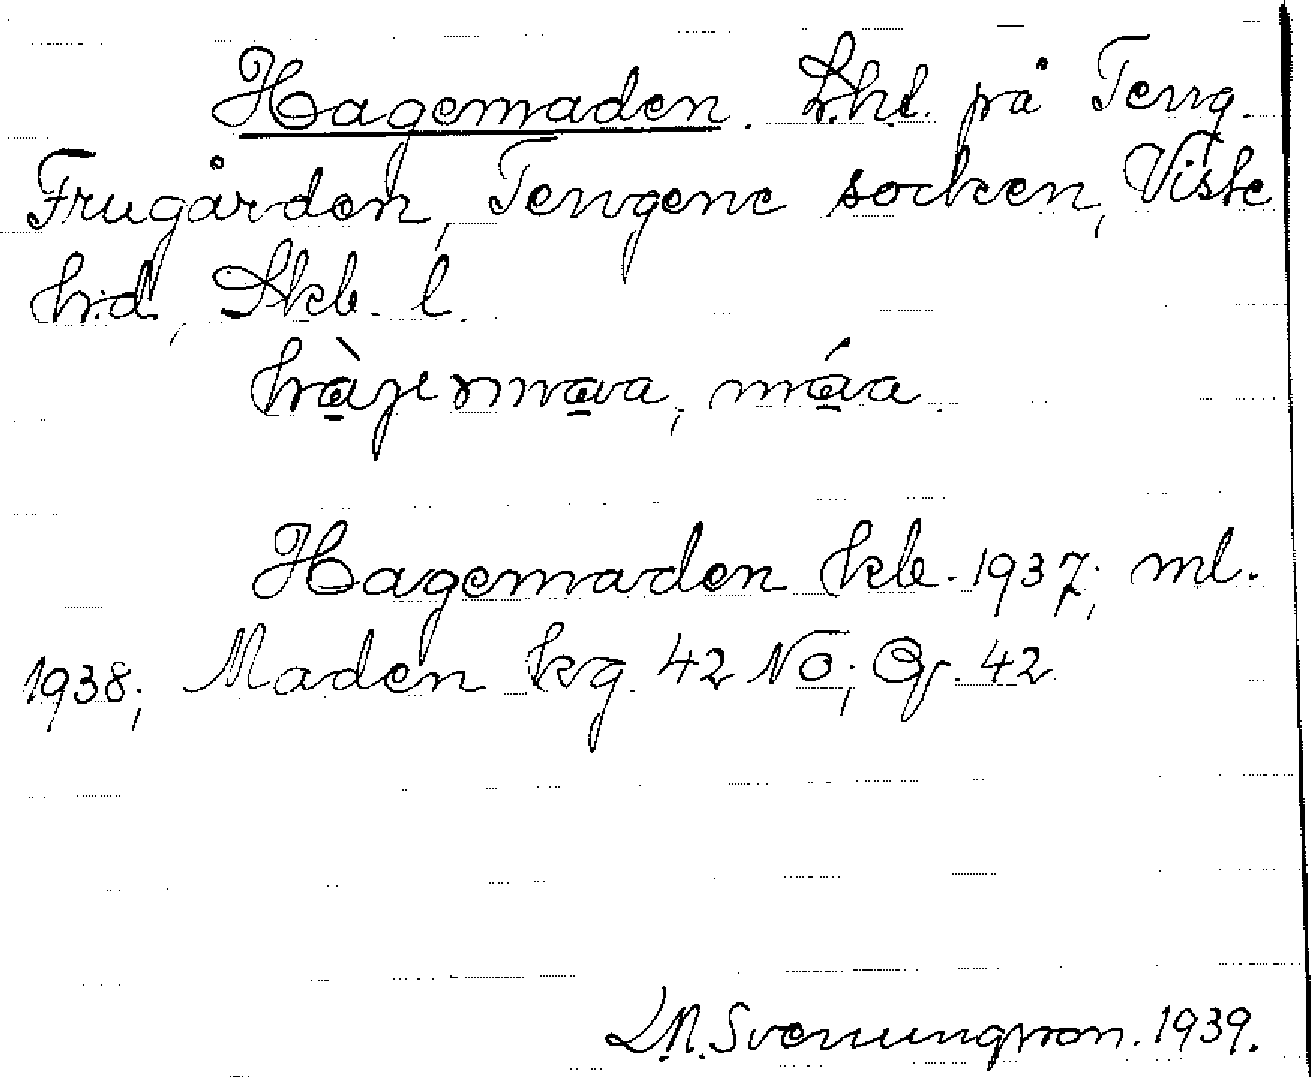 Hagemaden. L.hl. på Teng.
Frugården, Tengene socken, Viste
h:d, Skb. l.
hàgermava, máa.
Hagemaden kb. 1937; ml.
1938; Maden kg. 42 NO; Gr. 42
L.N. Svenungsson. 1939.